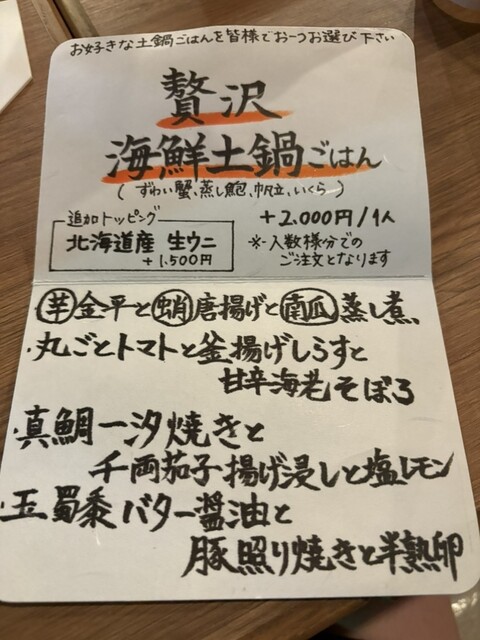 お好きな土鍋ごはんを皆様でお一つお選び下さい
贅沢
海鮮土鍋ごはん
(ずわい蟹、蒸し鮑、帆立、いくら)
追加トッピング
北海道産 生ウニ
+1.500円
+2.000円/1人
※人数様分での
ご注文となります
芋金平と蛸唐揚げと南瓜蒸し煮
・丸ごとトマトと釜揚げしらすと
甘辛海老そぼろ
・真鯛一汐焼きと
千両茄子揚げ浸しと塩レモン
・玉蜀黍バター醤油と
豚照り焼きと半熟卵